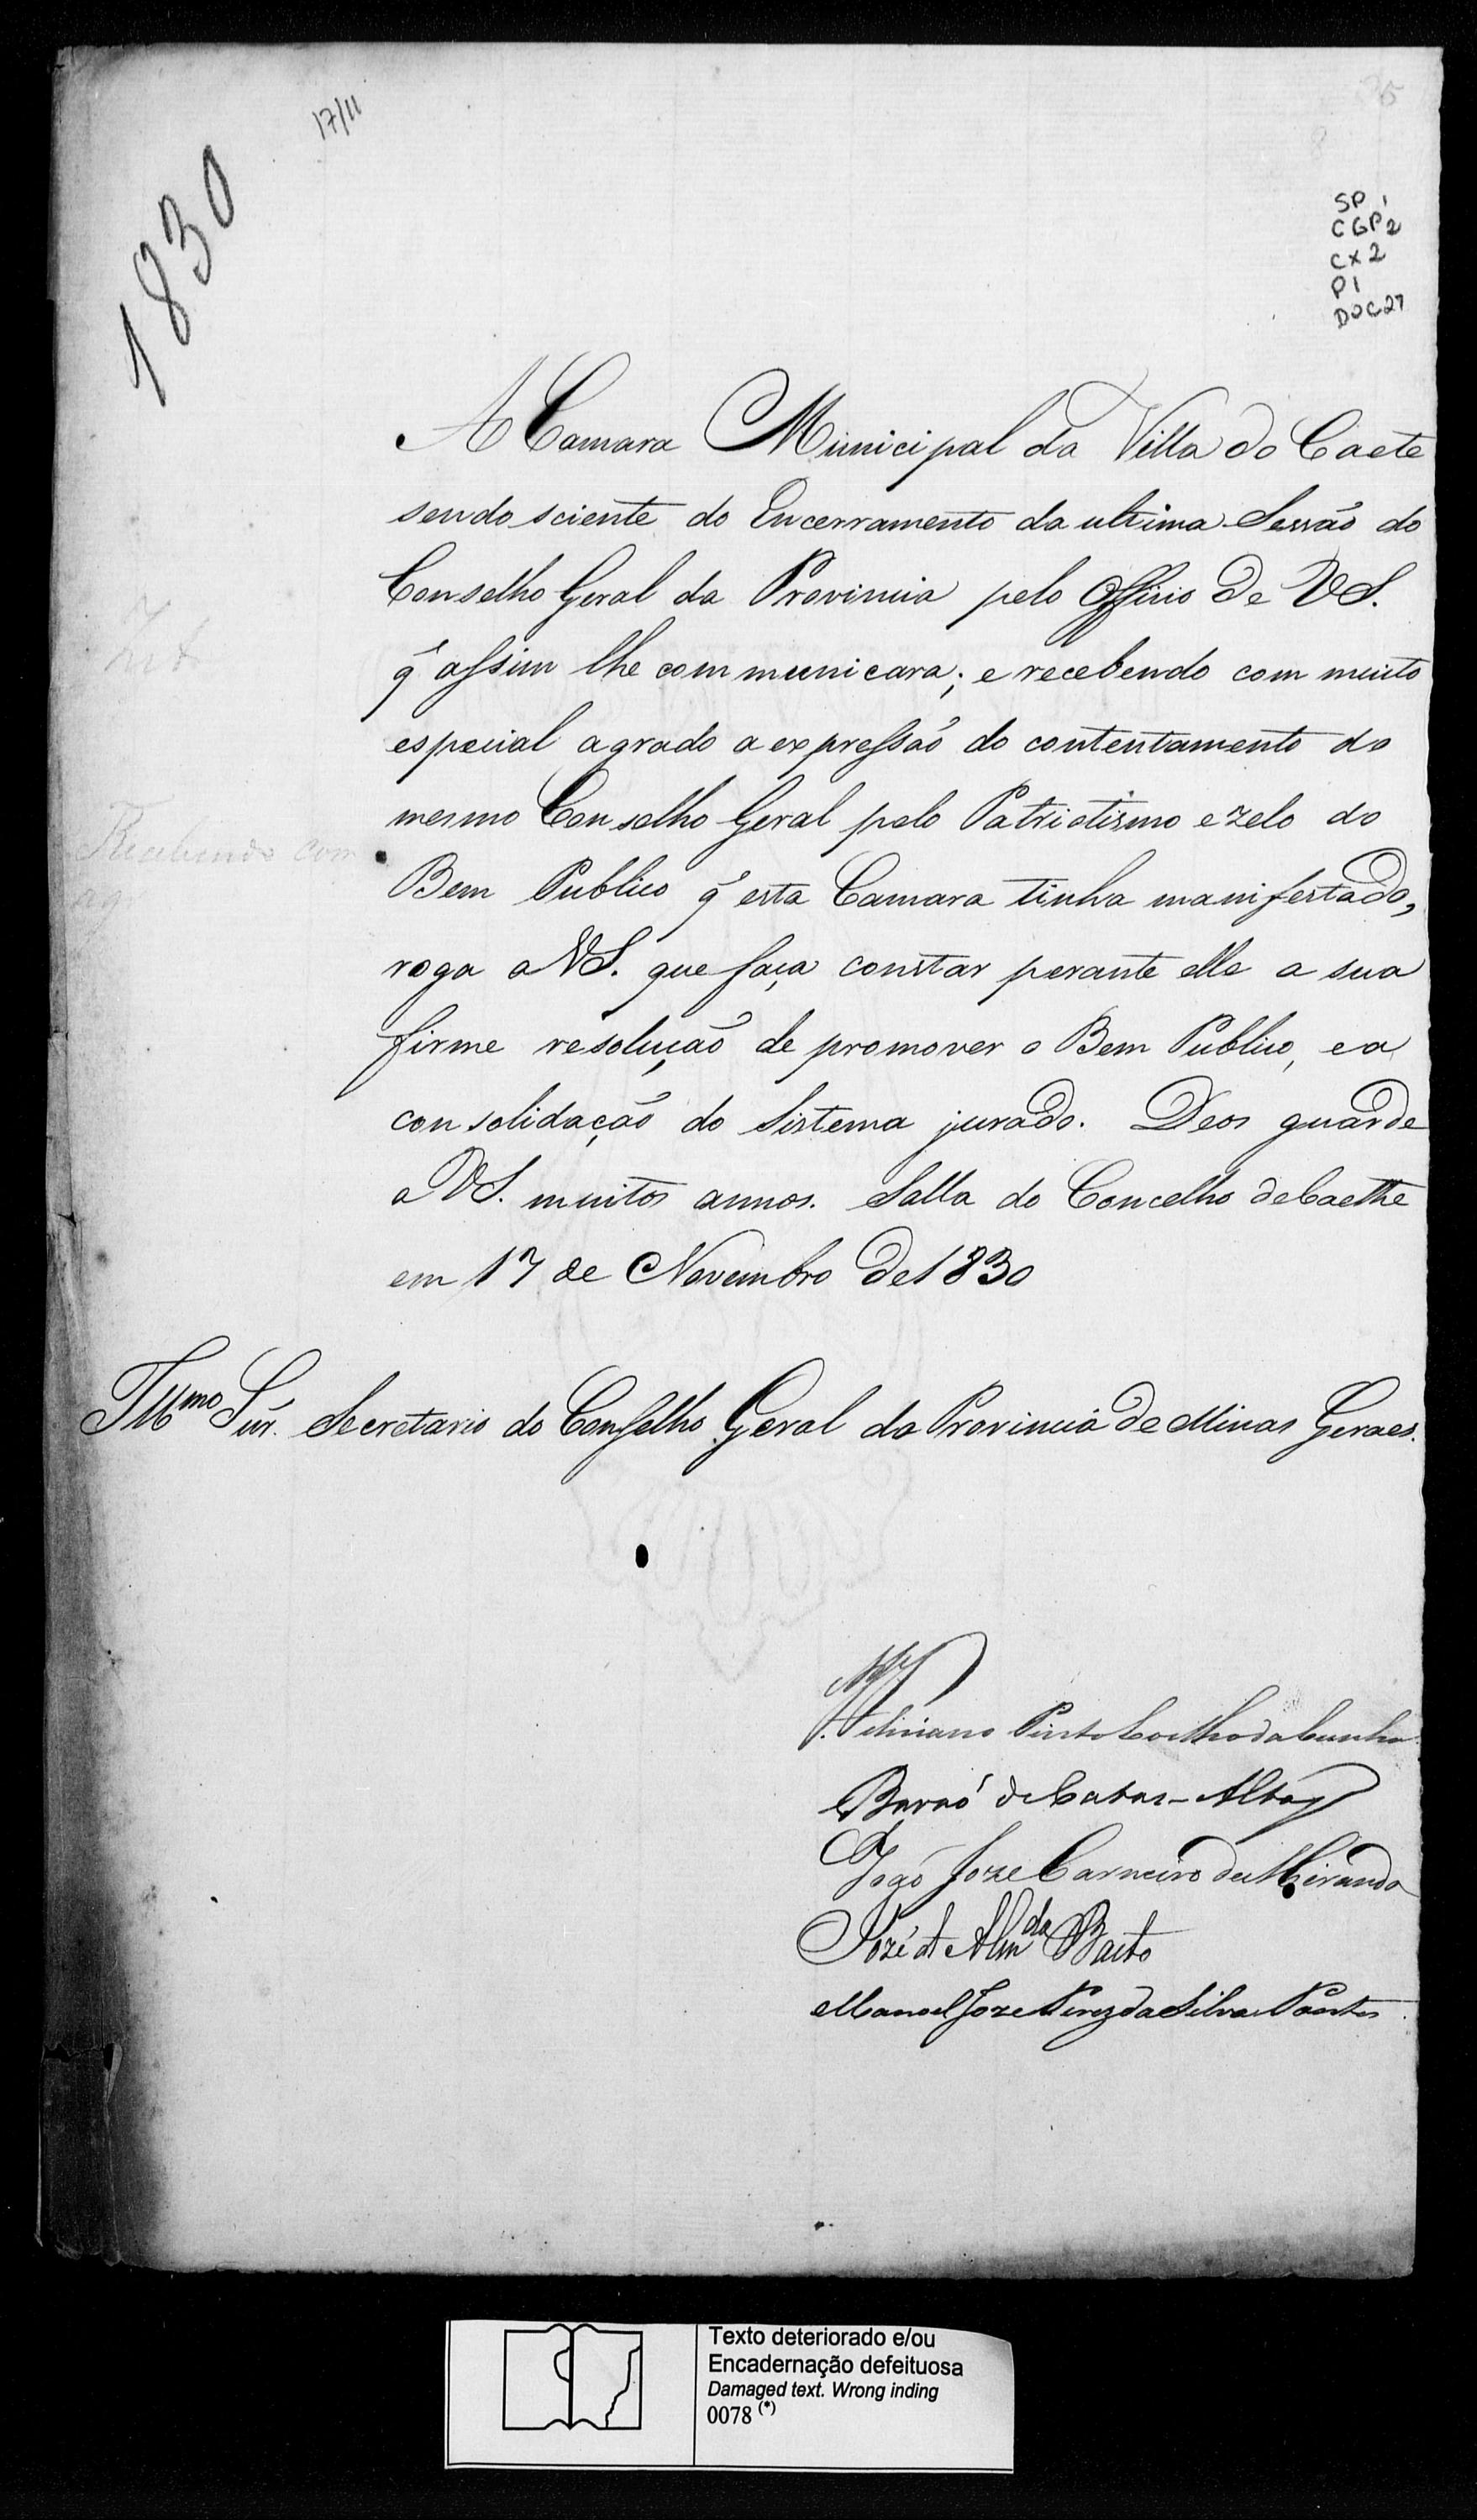 17/11
1830
SP 1
CGP 2
CX 2
P1
DOC 27
A Camara Municipal da Villa do Caete
sendo sciente do Encerramento da ultima Sessão do
Conselho Geral da Provincia pelo Officio de VS.
q̃ assim lhe communicara; e recebendo com muito
especial agrado a expressaõ do contentamento do
mesmo Conselho Geral pelo Patriotismo e zelo do
Bem Publico q̃ esta Camara tinha manifestado,
roga a VS. que faça constar perante elle a sua
firme resoluçaõ de promover o Bem Publico, e a
consolidaçaõ do Sistema jurado. Deos guarde
a VS. muitos annos. Salla do Concelho de Caethe
em 17 de Novembro de 1830
Illmo Snr. Secretario do Conselho Geral da Provincia de Minas Geraes.
Recebendo com
Feliciano Pinto Coelho da Cunha
Baraõ de Catas-Altas
Joaõ Joze Carneiro de Miranda
Jozé de Almda
Manoel Joze Pires da Silva Pontes
Texto deteriorado e/ou
Encadernação defeituosa
Damaged text. Wrong inding
0078 (*)